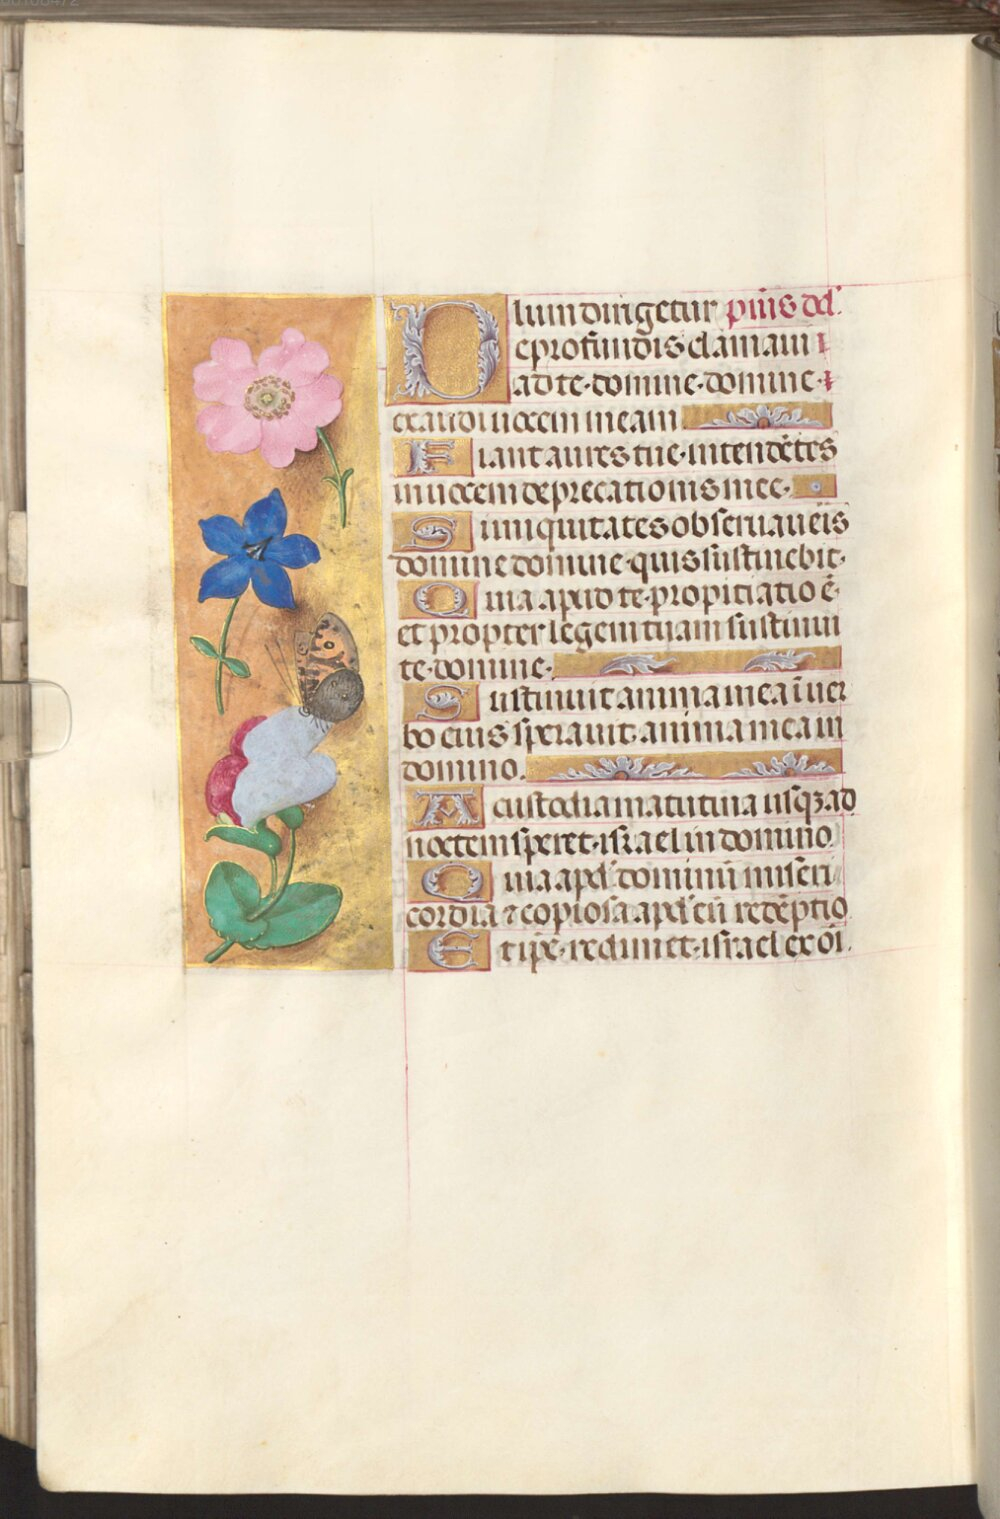 lium dirigetur p̄us dd.
De profundis clamaui
ad te·domine·domine·
exaudi uocem meam
Fiant aures tue·intendẽtes
in uocem deprecationis mee·
Si iniquitates obseruaueis
domine domine·quis sustinebit·
Quia apud te·propitiatio ẽ·
et propter legem tuam sustinui
te·domine·
Sustinuit anima mea ĩ uer
bo eius sperauit·anima mea in
domino.
A custodia matutina usqꝫ ad
noctem speret·israel in domino.
Quia apđ dominũ miseri
cordia ⁊ copiosa apđ eũ redẽptio
Et ip̃e·redimet·israel ex oı̃.